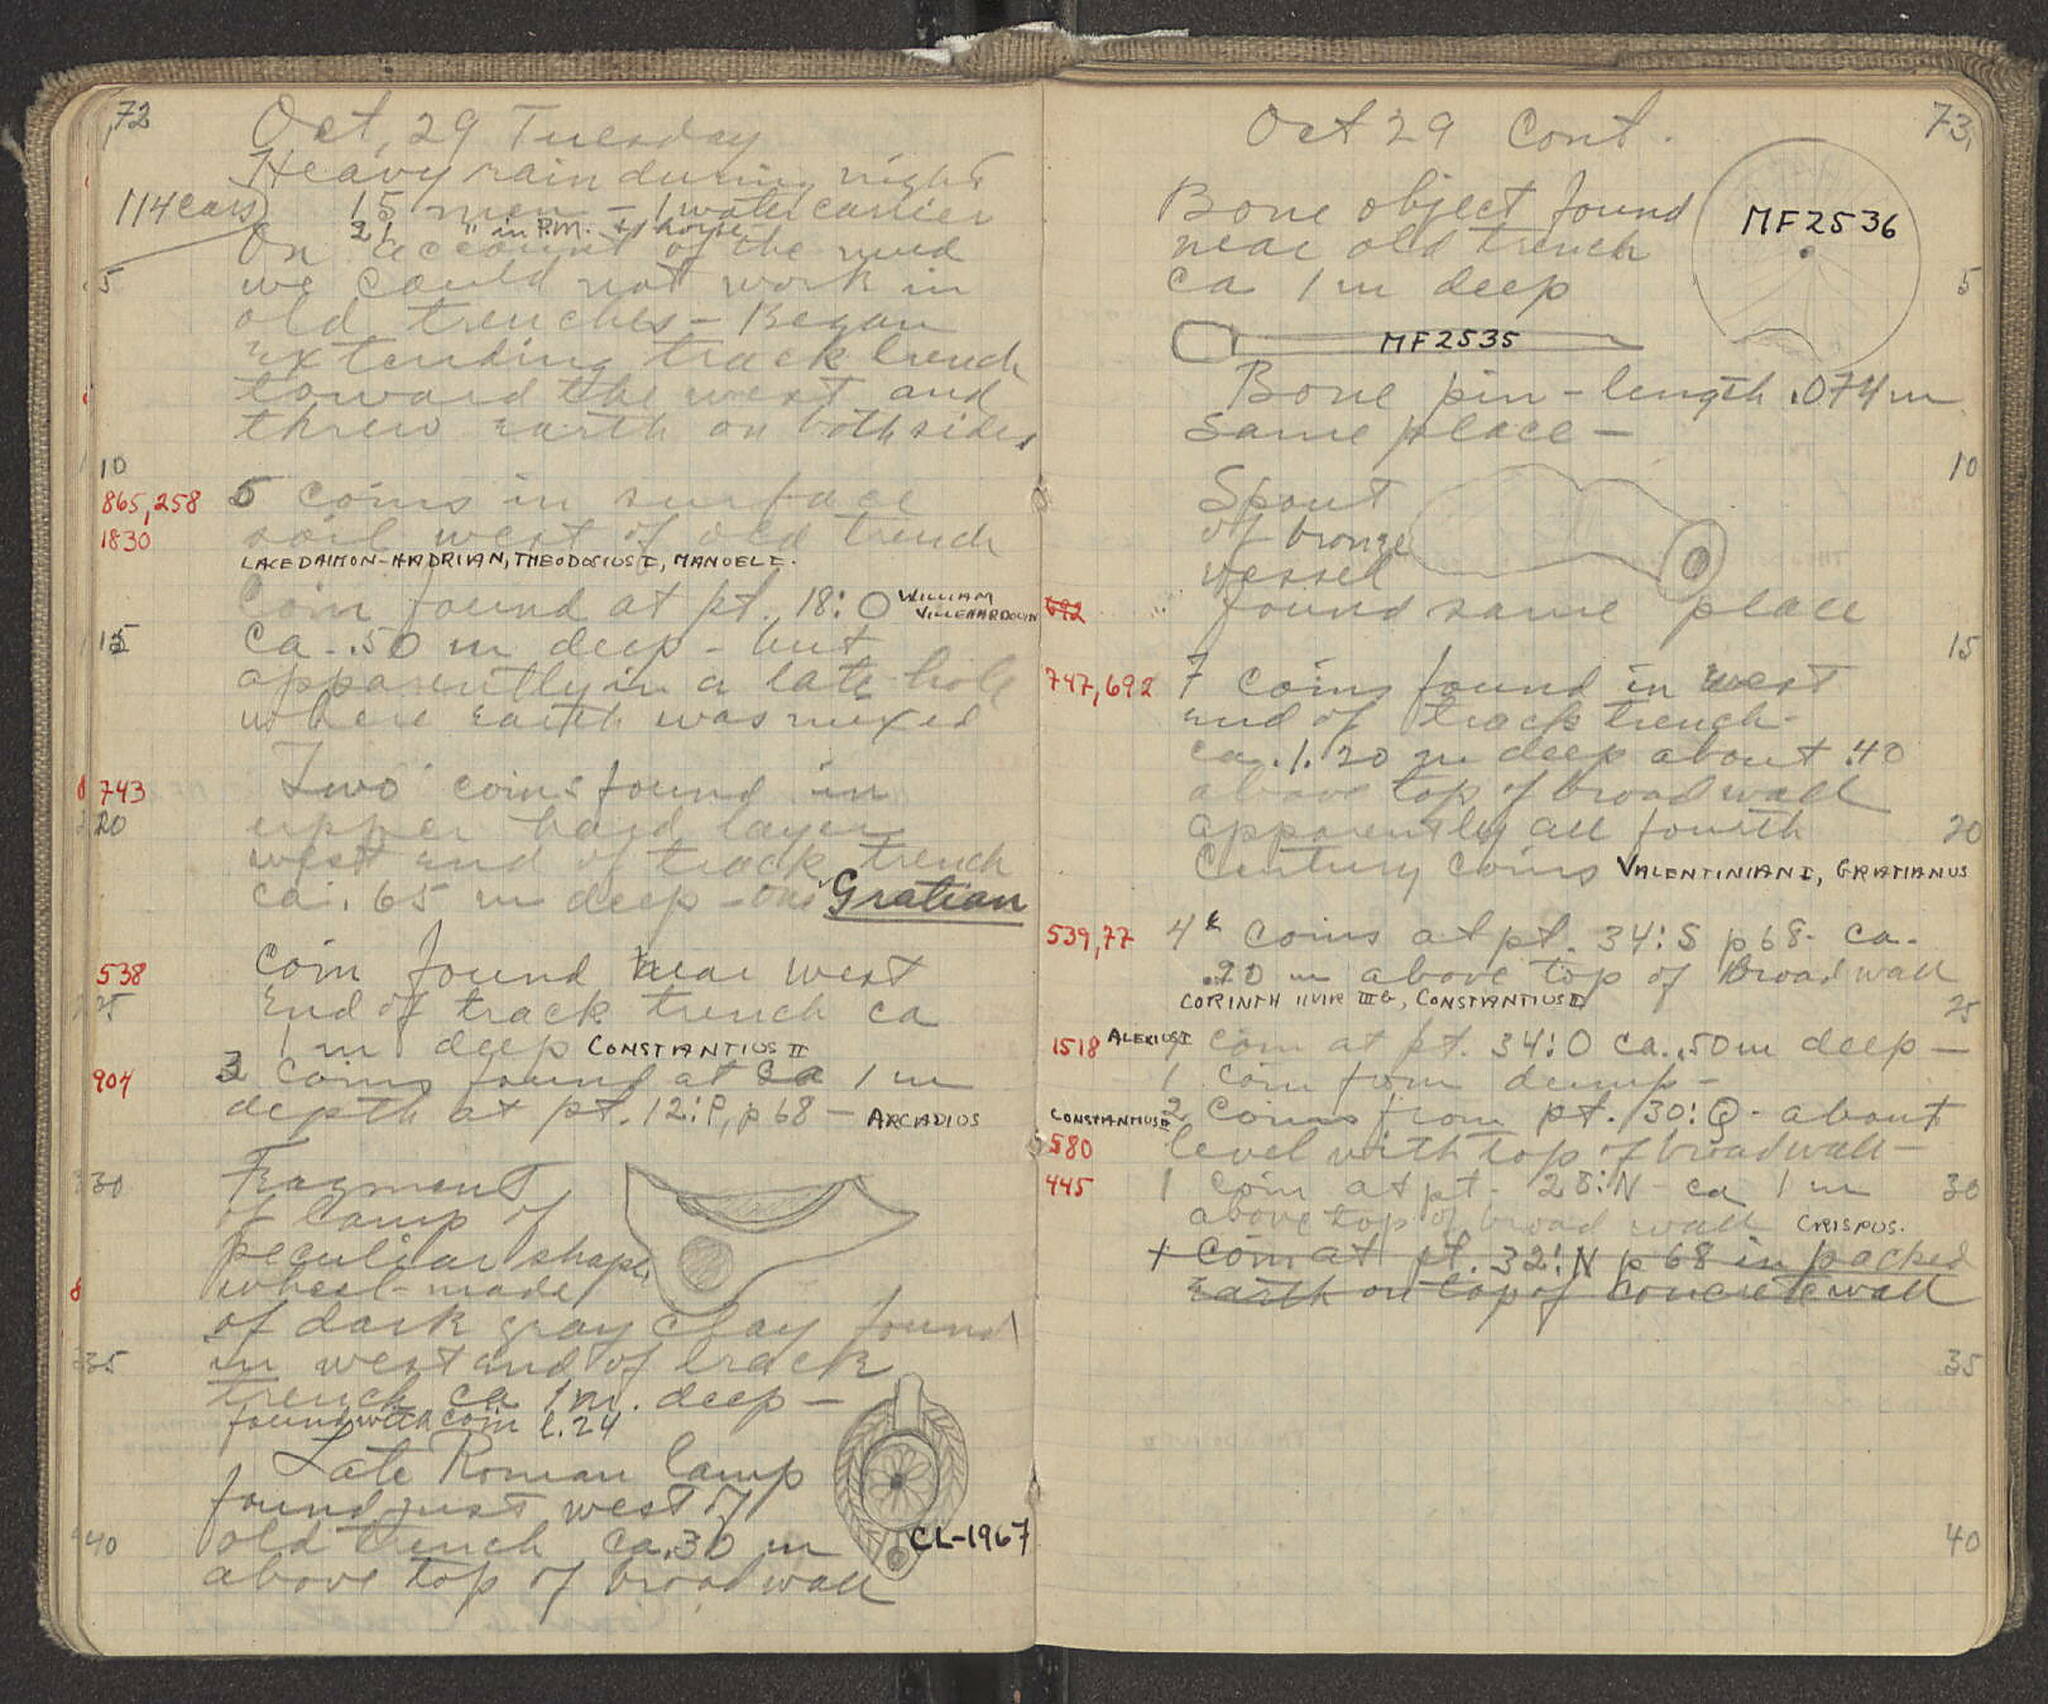 72
Oct, 29 Tuesday
Heavy rain during night
114 cars) 15 men – 1 water carrier
21 " in P.M. + 1 horse
On account of the mud
5 we could not work in
old trenches – Began
extending track trench
toward the west and
threw earth on both sides
10
865,258 5 coins in surface
1830 soil west of old trench
LACEDAIMON-HADRIAN, THEODOSIUS I, MANUEL I.
Coin found at pt. 18:O WILLIAM VILLEHARDOUIN
15 ca. .50 m deep – but
apparently in a late hole
where earth was mixed
743 Two coins found in
20 upper hard layer
west end of track trench
ca. .65 m deep – one Gratian
538 Coin found near west
25 end of track trench ca
1 m deep CONSTANTIUS II
904 3 coins found at ca 1 m
depth at pt. 12:P, p68 – ARCADIUS
30 Fragment
of lamp of
peculiar shape,
wheel-made
of dark gray clay found
35 in west end of track
trench ca 1 m. deep –
found with coin l. 24
Late Roman lamp
found just west of
40 old trench ca .30 m
above top of broad wall
CL-1967
73
Oct 29 Cont.
Bone object found
near old trench
5 ca 1 m deep
MF2536
MF2535
Bone pin – length .074 m
Same place –
10
Spout
of bronze
vessel
692 found same place
15
747,692 7 coins found in west
end of track trench –
ca. 1.20 m deep about .40
above top of broad wall
apparently all fourth 20
Century coins VALENTINIAN I, GRATIANUS
539,77 4 coins at pt. 34:S p68 – ca.
.20 m above top of Broad wall
CORINTH IIVIR III G, CONSTANTIUS II
25
1518 ALEXIUS I 1 coin at pt. 34:O ca. .50 m deep –
1 coin from dump –
CONSTANTIUS II 2 coins from pt. 30:Q – about
580 level with top of broad wall –
445 1 coin at pt. 28:N – ca 1 m 30
above top of broad wall CRISPUS.
+ Coin at pt. 32:N p68 in packed
earth on top of concrete wall
35
40